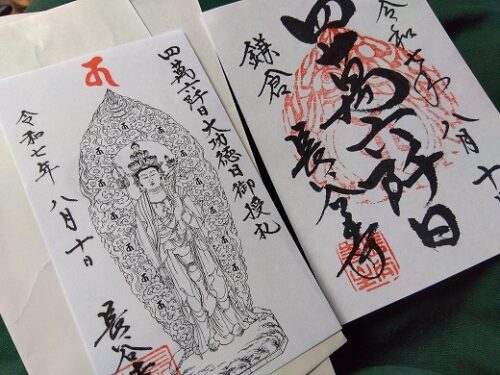 四萬六阡日大功徳日御授札
令和七年
八月十日
長谷寺
令和七年八月十
四萬六阡日
鎌倉
長谷寺